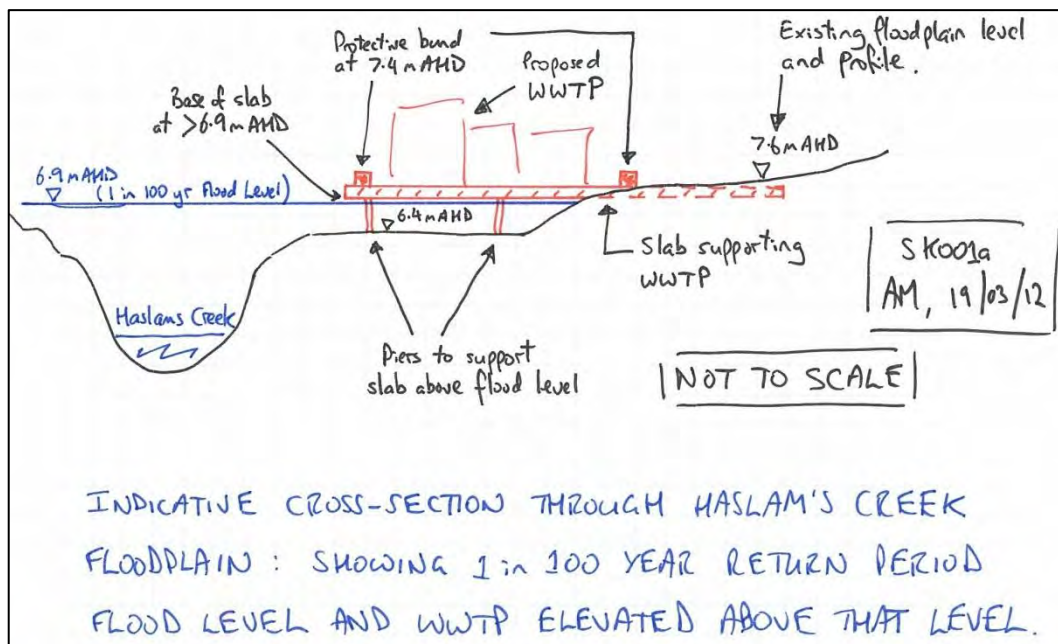 Protective bund
at 7.4 mAHD
Proposed
WWTP
Existing floodplain level
and profile.
Base of slab
at >6.9 mAHD
7.6 mAHD
6.9 mAHD
(1 in 100 yr Flood Level)
6.4 mAHD
Slab supporting
WWTP
SK001a
AM, 19/03/12
Haslams Creek
Piers to support
slab above flood level
NOT TO SCALE
INDICATIVE CROSS-SECTION THROUGH HASLAM'S CREEK
FLOODPLAIN : SHOWING 1 in 100 YEAR RETURN PERIOD
FLOOD LEVEL AND WWTP ELEVATED ABOVE THAT LEVEL.